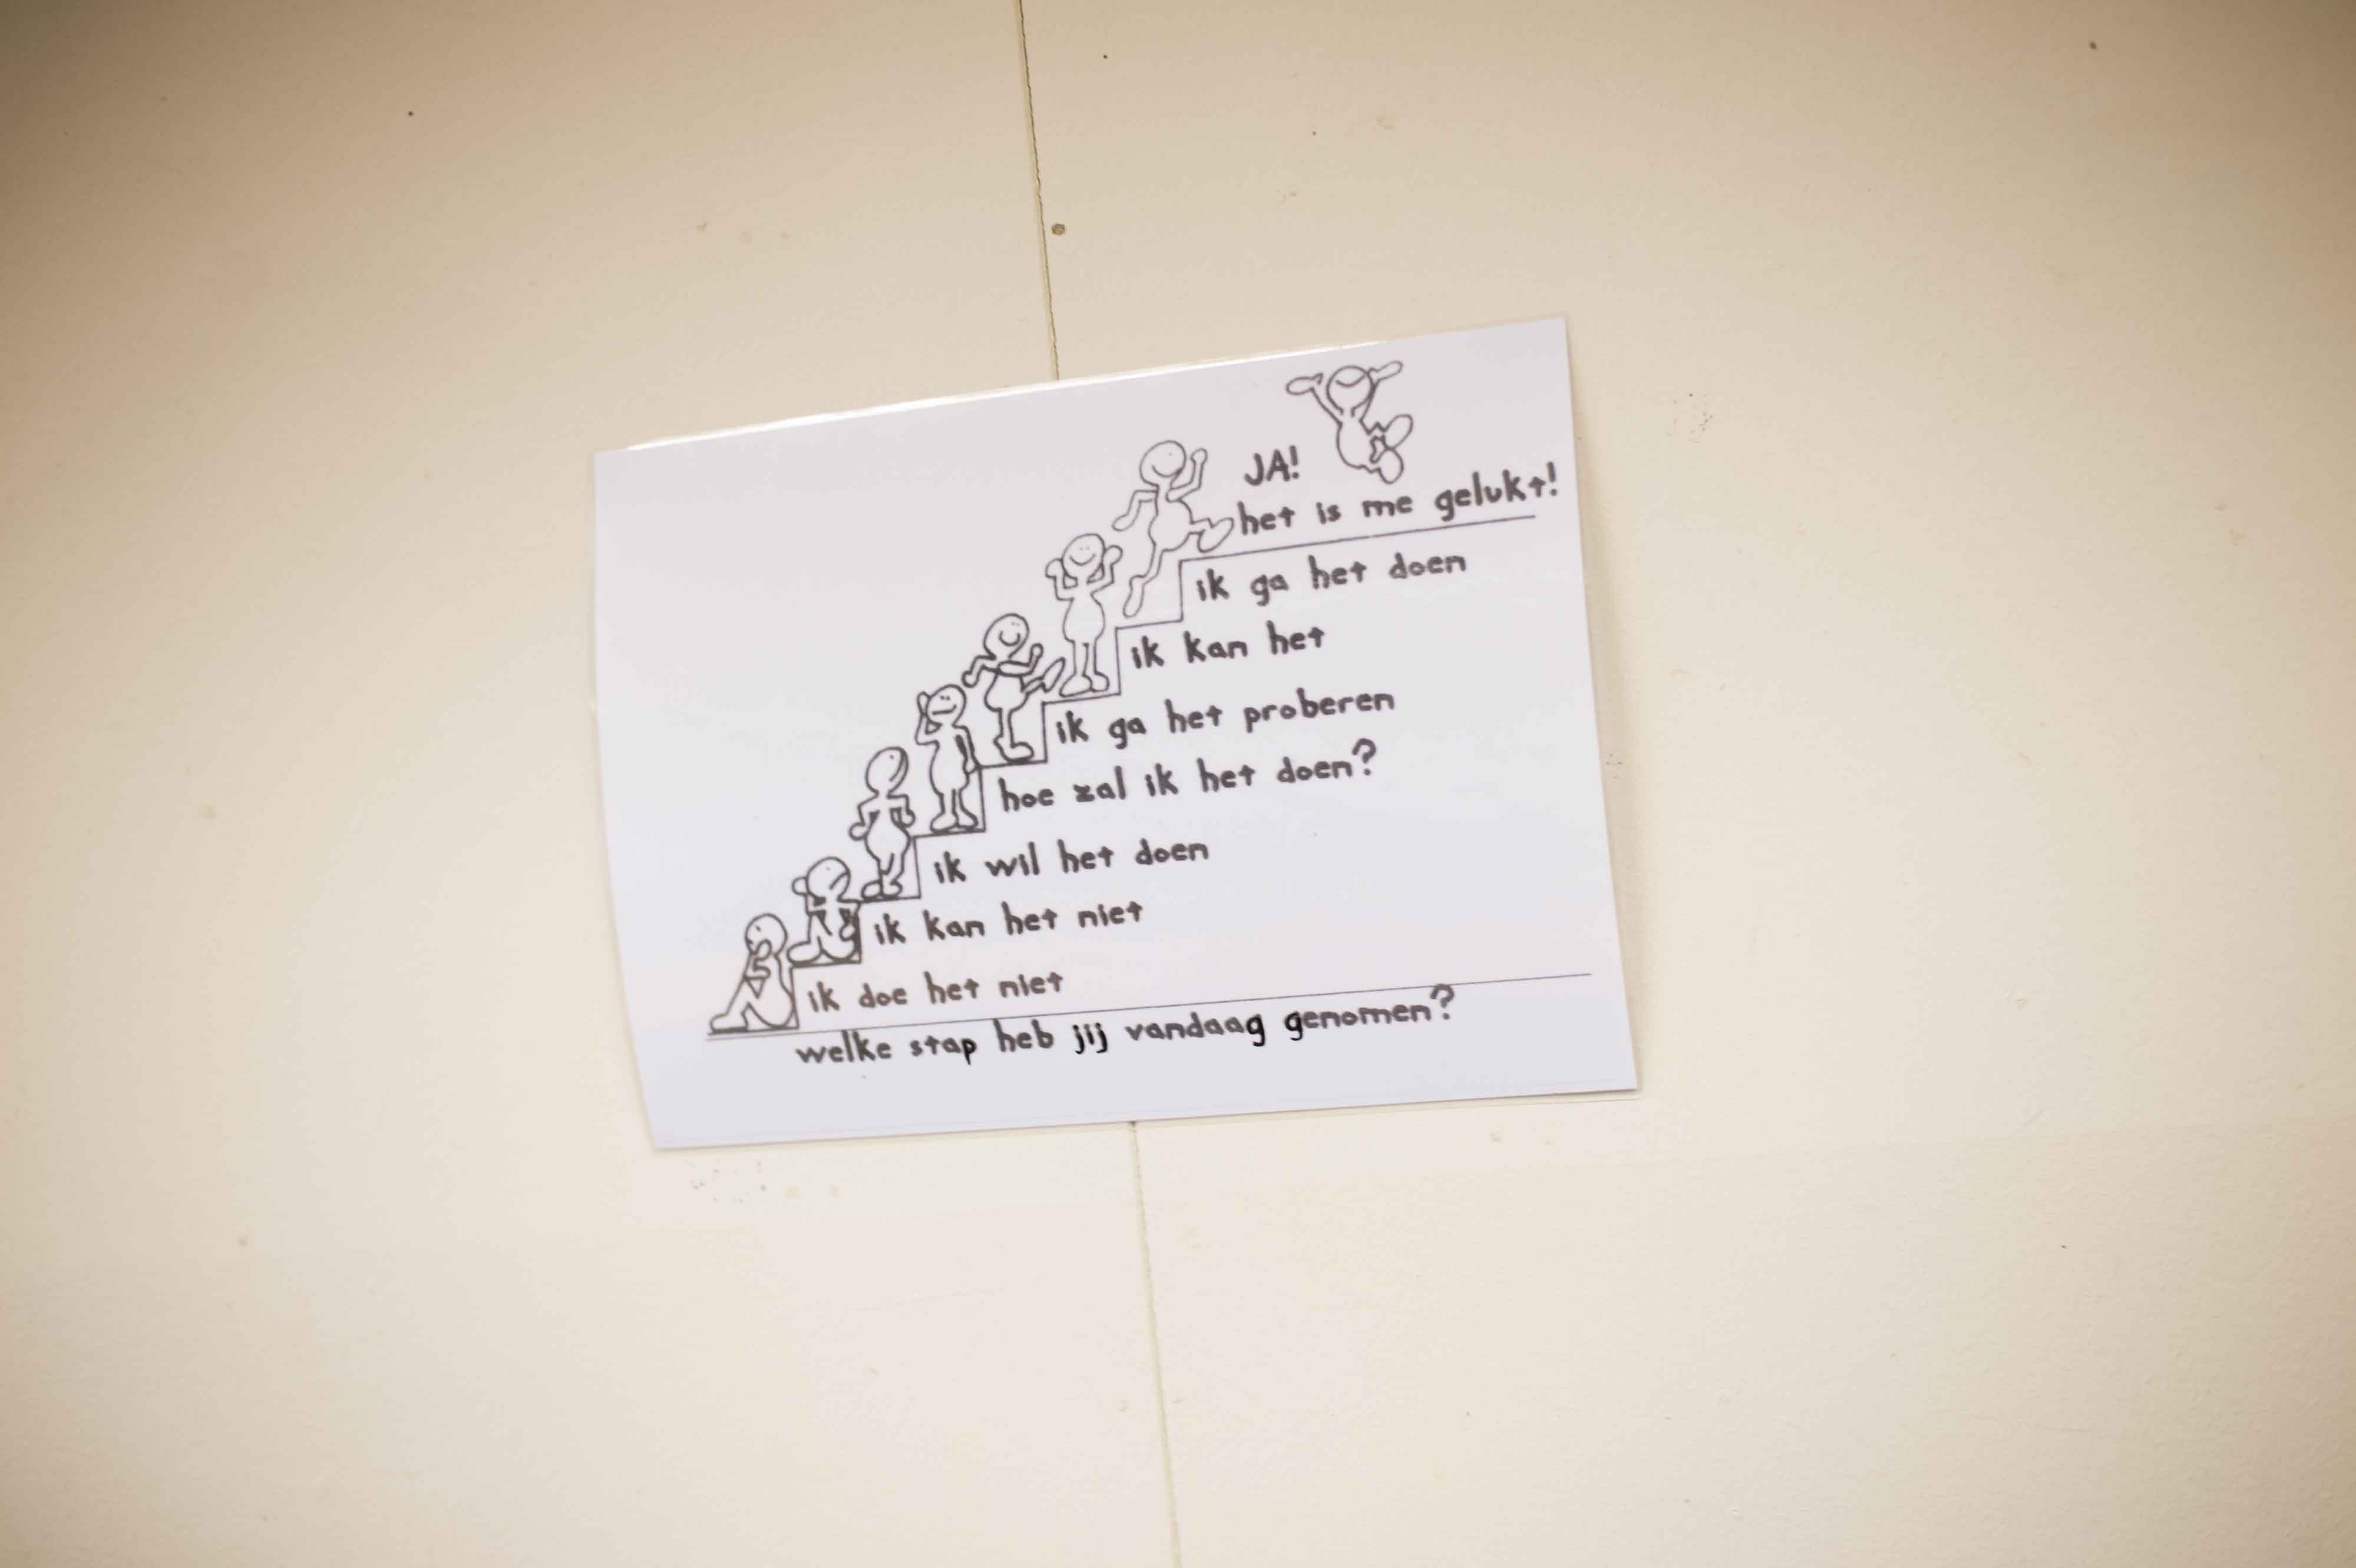 JA!
het is me gelukt!
ik ga het doen
ik kan het
ik ga het proberen
hoe zal ik het doen?
ik wil het doen
ik kan het niet
ik doe het niet
welke stap heb jij vandaag genomen?